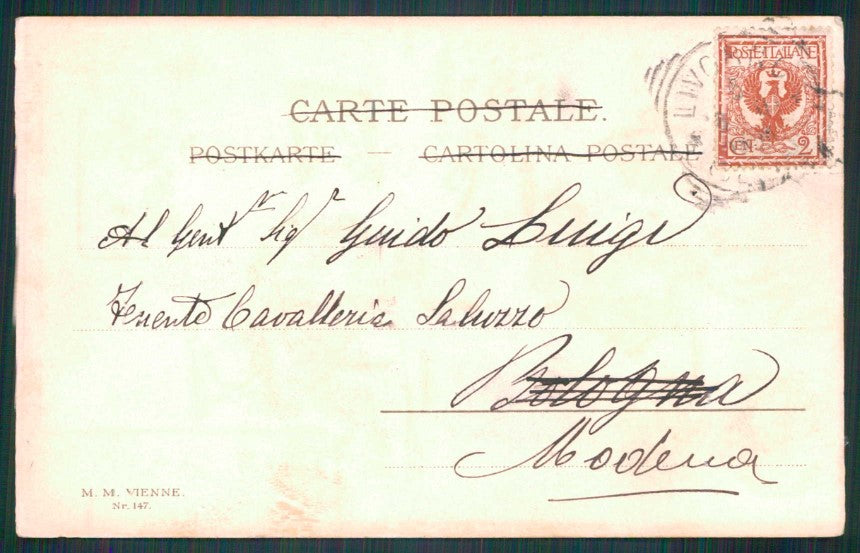 POSTE·ITALIANE
CEN. 2
CARTE POSTALE.
POSTKARTE — CARTOLINA POSTALE
Al Gent.mo Sigr Guido Luigi
Tenente Cavalleria Saluzzo
Bologna
Modena
M. M. VIENNE.
Nr. 147.